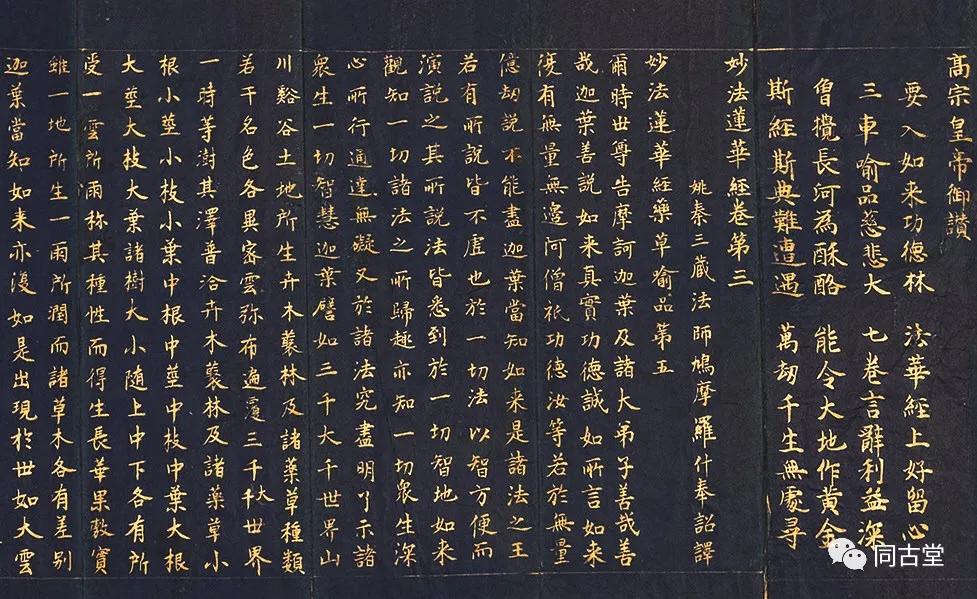 髙宗皇帝御讃
要入如来功德林　法華經上好留心
三車喻品慈悲大　七卷言辭利益深
曾攪長河為酥酪　能令大地作黄金
斯經斯典難遭遇　萬劫千生無處尋
妙法蓮華經卷第三
姚秦三藏法師鳩摩羅什奉詔譯
妙法蓮華經藥草喻品第五
爾時世尊告摩訶迦葉及諸大弟子善哉善
哉迦葉善説如来真實功德誠如所言如来
復有無量無邊阿僧祇功德汝等若於無量
億劫説不能盡迦葉當知如来是諸法之王
若有所説皆不虚也於一切法以智方便而
演説之其所説法皆悉到於一切智地如来
觀知一切諸法之所歸趣亦知一切衆生深
心所行通達無礙又於諸法究盡明了示諸
衆生一切智慧迦葉譬如三千大千世界山
川谿谷土地所生卉木藂林及諸藥草種類
若干名色各異宻雲弥布遍覆三千大千世界
一時等澍其澤普洽卉木藂林及諸藥草小
根小莖小枝小葉中根中莖中枝中葉大根
大莖大枝大葉諸樹大小随上中下各有所
受一雲所雨称其種性而得生長華果敷實
雖一地所生一雨所潤而諸草木各有差别
迦葉當知如来亦復如是出現於世如大雲
同古堂